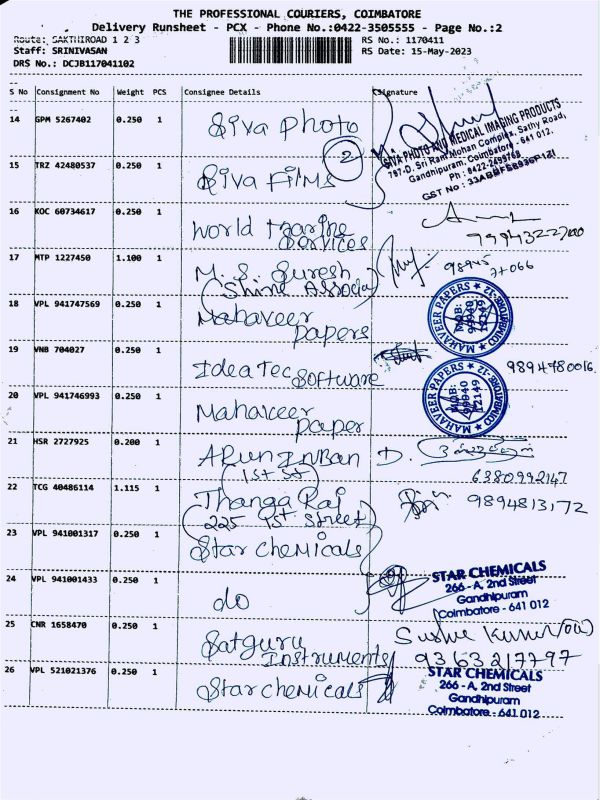 THE PROFESSIONAL COURIERS, COIMBATORE
Delivery Runsheet - PCX - Phone No.:0422-3505555 - Page No.:2
Route: SAKTHIROAD 1 2 3 RS No.: 1170411
Staff: SRINIVASAN RS Date: 15-May-2023
DRS No.: DCJB117041102
S No Consignment No Weight PCS Consignee Details Signature
14 GPM 5267402 0.250 1 Siva Photo
SIVA PHOTO AND MEDICAL IMAGING PRODUCTS
787-D, Sri Ram Mohan Complex, Sathy Road,
Gandhipuram, Coimbatore - 641 012.
Ph : 0422-2499768
GST No :
2
15 TRZ 42480537 0.250 1 Siva Films
16 KOC 60734617 0.250 1 World Marine
Services
17 MTP 1227450 1.100 1 M.S. Suresh
(Shine Associa)
98945
77066
18 VPL 941747569 0.250 1 Mahaveer
papers
MAHAVEER PAPERS ★ COIMBATORE-12 ★
MOB:
99940
12149
19 VNB 704027 0.250 1 IdeaTec Software 9894980016
20 VPL 941746993 0.250 1 Mahaveer
paper
MAHAVEER PAPERS ★ COIMBATORE-12 ★
MOB:
99940
12149
21 HSR 2727925 0.200 1 Arun Inban D.
(1st St) 6380992147
22 TCG 40486114 1.115 1 Thanga Raj 9894813172
(225 1st Street)
23 VPL 941001317 0.250 1 Star chemicals
24 VPL 941001433 0.250 1 do
STAR CHEMICALS
266 - A, 2nd Street
Gandhipuram
Coimbatore - 641 012
25 CNR 1658470 0.250 1 Satguru
Instruments 9363217797
26 VPL 521021376 0.250 1 Star chemicals
STAR CHEMICALS
266 - A, 2nd Street
Gandhipuram
Coimbatore - 641 012